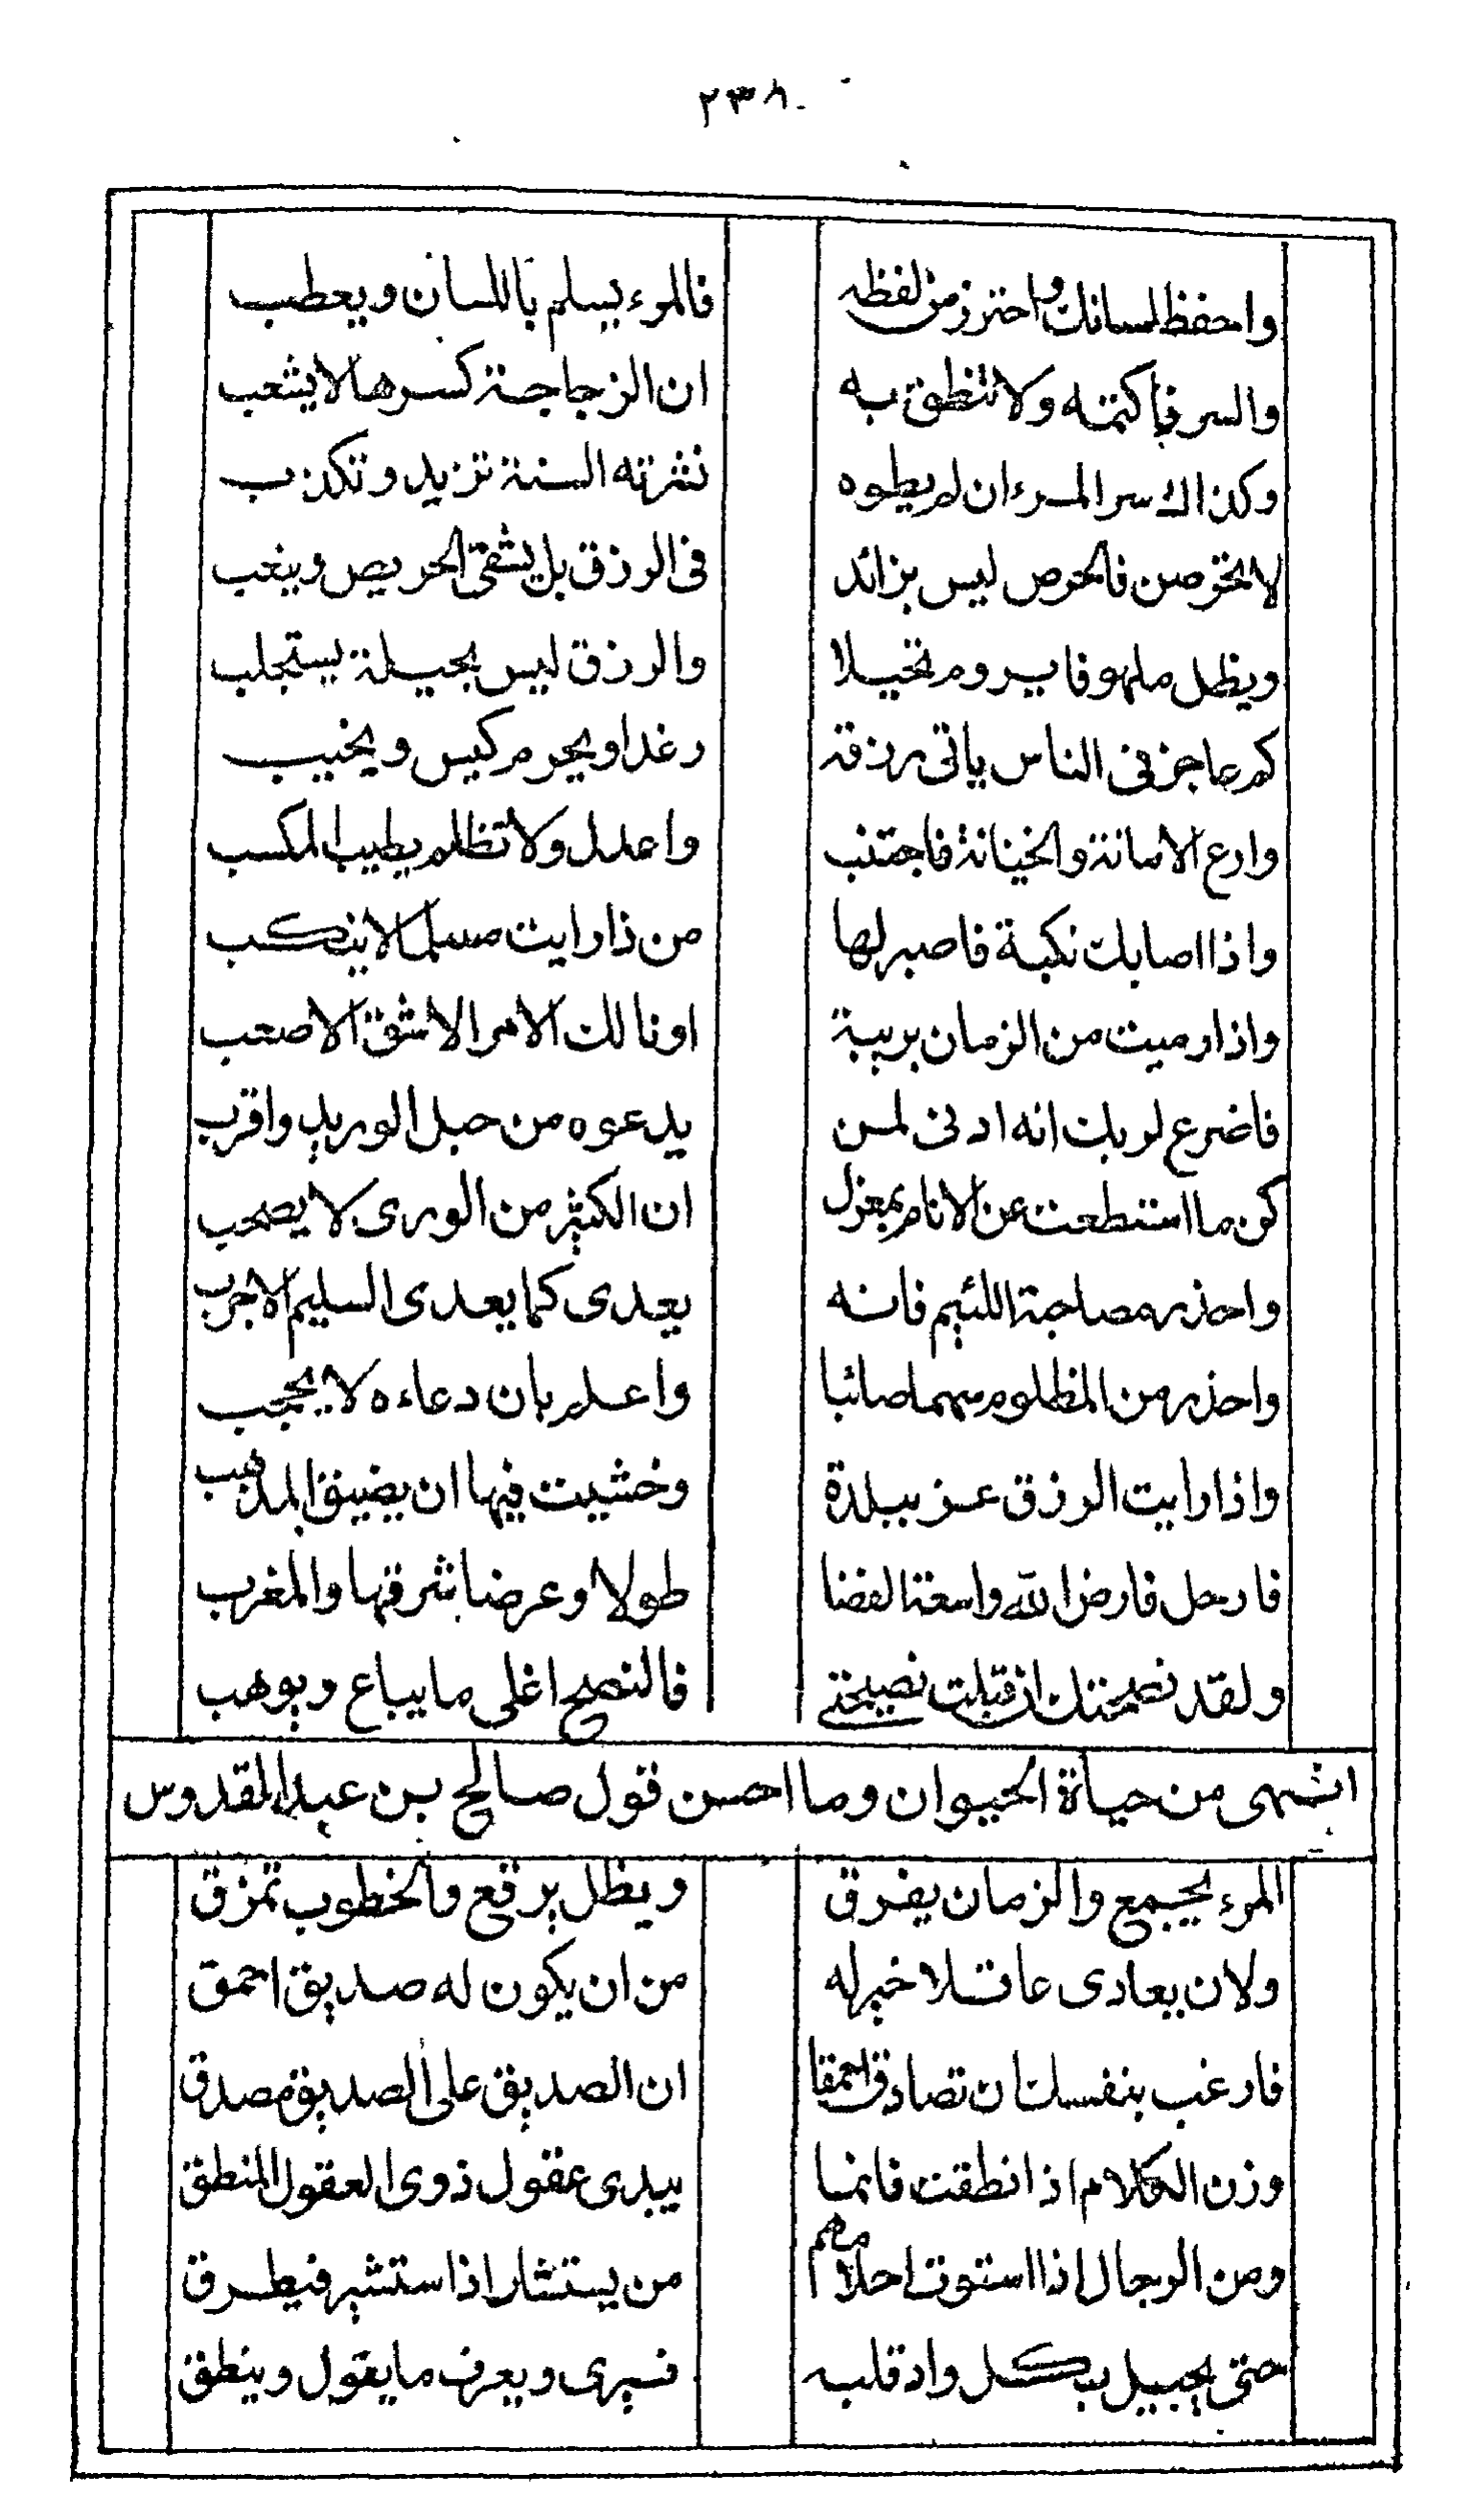 ٢٣٨
واحفظ لسانك واحترز من لفظه فالمرء يسلم باللسان ويعطب
والسر فاكتمه ولا تنطق به ان الزجاجة كسرها لا يشعب
وكذاك سر المرء ان لم يطوه نشرته السنة تزيد وتكذب
لا تحرصن فالحرص ليس بزائد فى الرزق بل يشقى الحريص ويتعب
ويظل ملهوفا يروم تحيلا والرزق ليس بحيلة يستجلب
كم عاجز فى الناس ياتى رزقه رغدا ويحرم كيس ويخيب
وارع الامانة والخيانة فاجتنب واعدل ولا تظلم يطيب المكسب
واذا اصابك نكبة فاصبر لها من ذا رايت مسلما لا ينكب
واذا رميت من الزمان بريبة او نالك الامر الاشق الاصعب
فاضرع لربك انه ادنى لمن يدعوه من حبل الوريد واقرب
كن ما استطعت عن الانام بمعزل ان الكثير من الورى لا يصحب
واحذر مصاحبة اللئيم فانه يعدى كما يعدى السليم الاجرب
واحذر من المظلوم سهما صائبا واعلم بان دعاءه لا يحجب
واذا رايت الرزق عز ببلدة وخشيت فيها ان يضيق المذهب
فارحل فارض الله واسعة الفضا طولا وعرضا شرقها والمغرب
ولقد نصحتك ان قبلت نصيحتى فالنصح اغلى ما يباع ويوهب
انتهى من حياة الحيوان وما احسن قول صالح بن عبد القدوس
المرء يجمع والزمان يفرق ويظل يرقع والخطوب تمزق
ولان يعادى عاقلا خير له من ان يكون له صديق احمق
فارغب بنفسك ان تصادق احمقا ان الصديق على الصديق مصدق
وزن الكلام اذا نطقت فانما يبدى عقول ذوى العقول المنطق
ومن الرجال اذا استوت احلامهم من يستشار اذا استشير فيطرق
حتى يجيل بكل واد قلبه فيرى ويعرف ما يقول وينطق